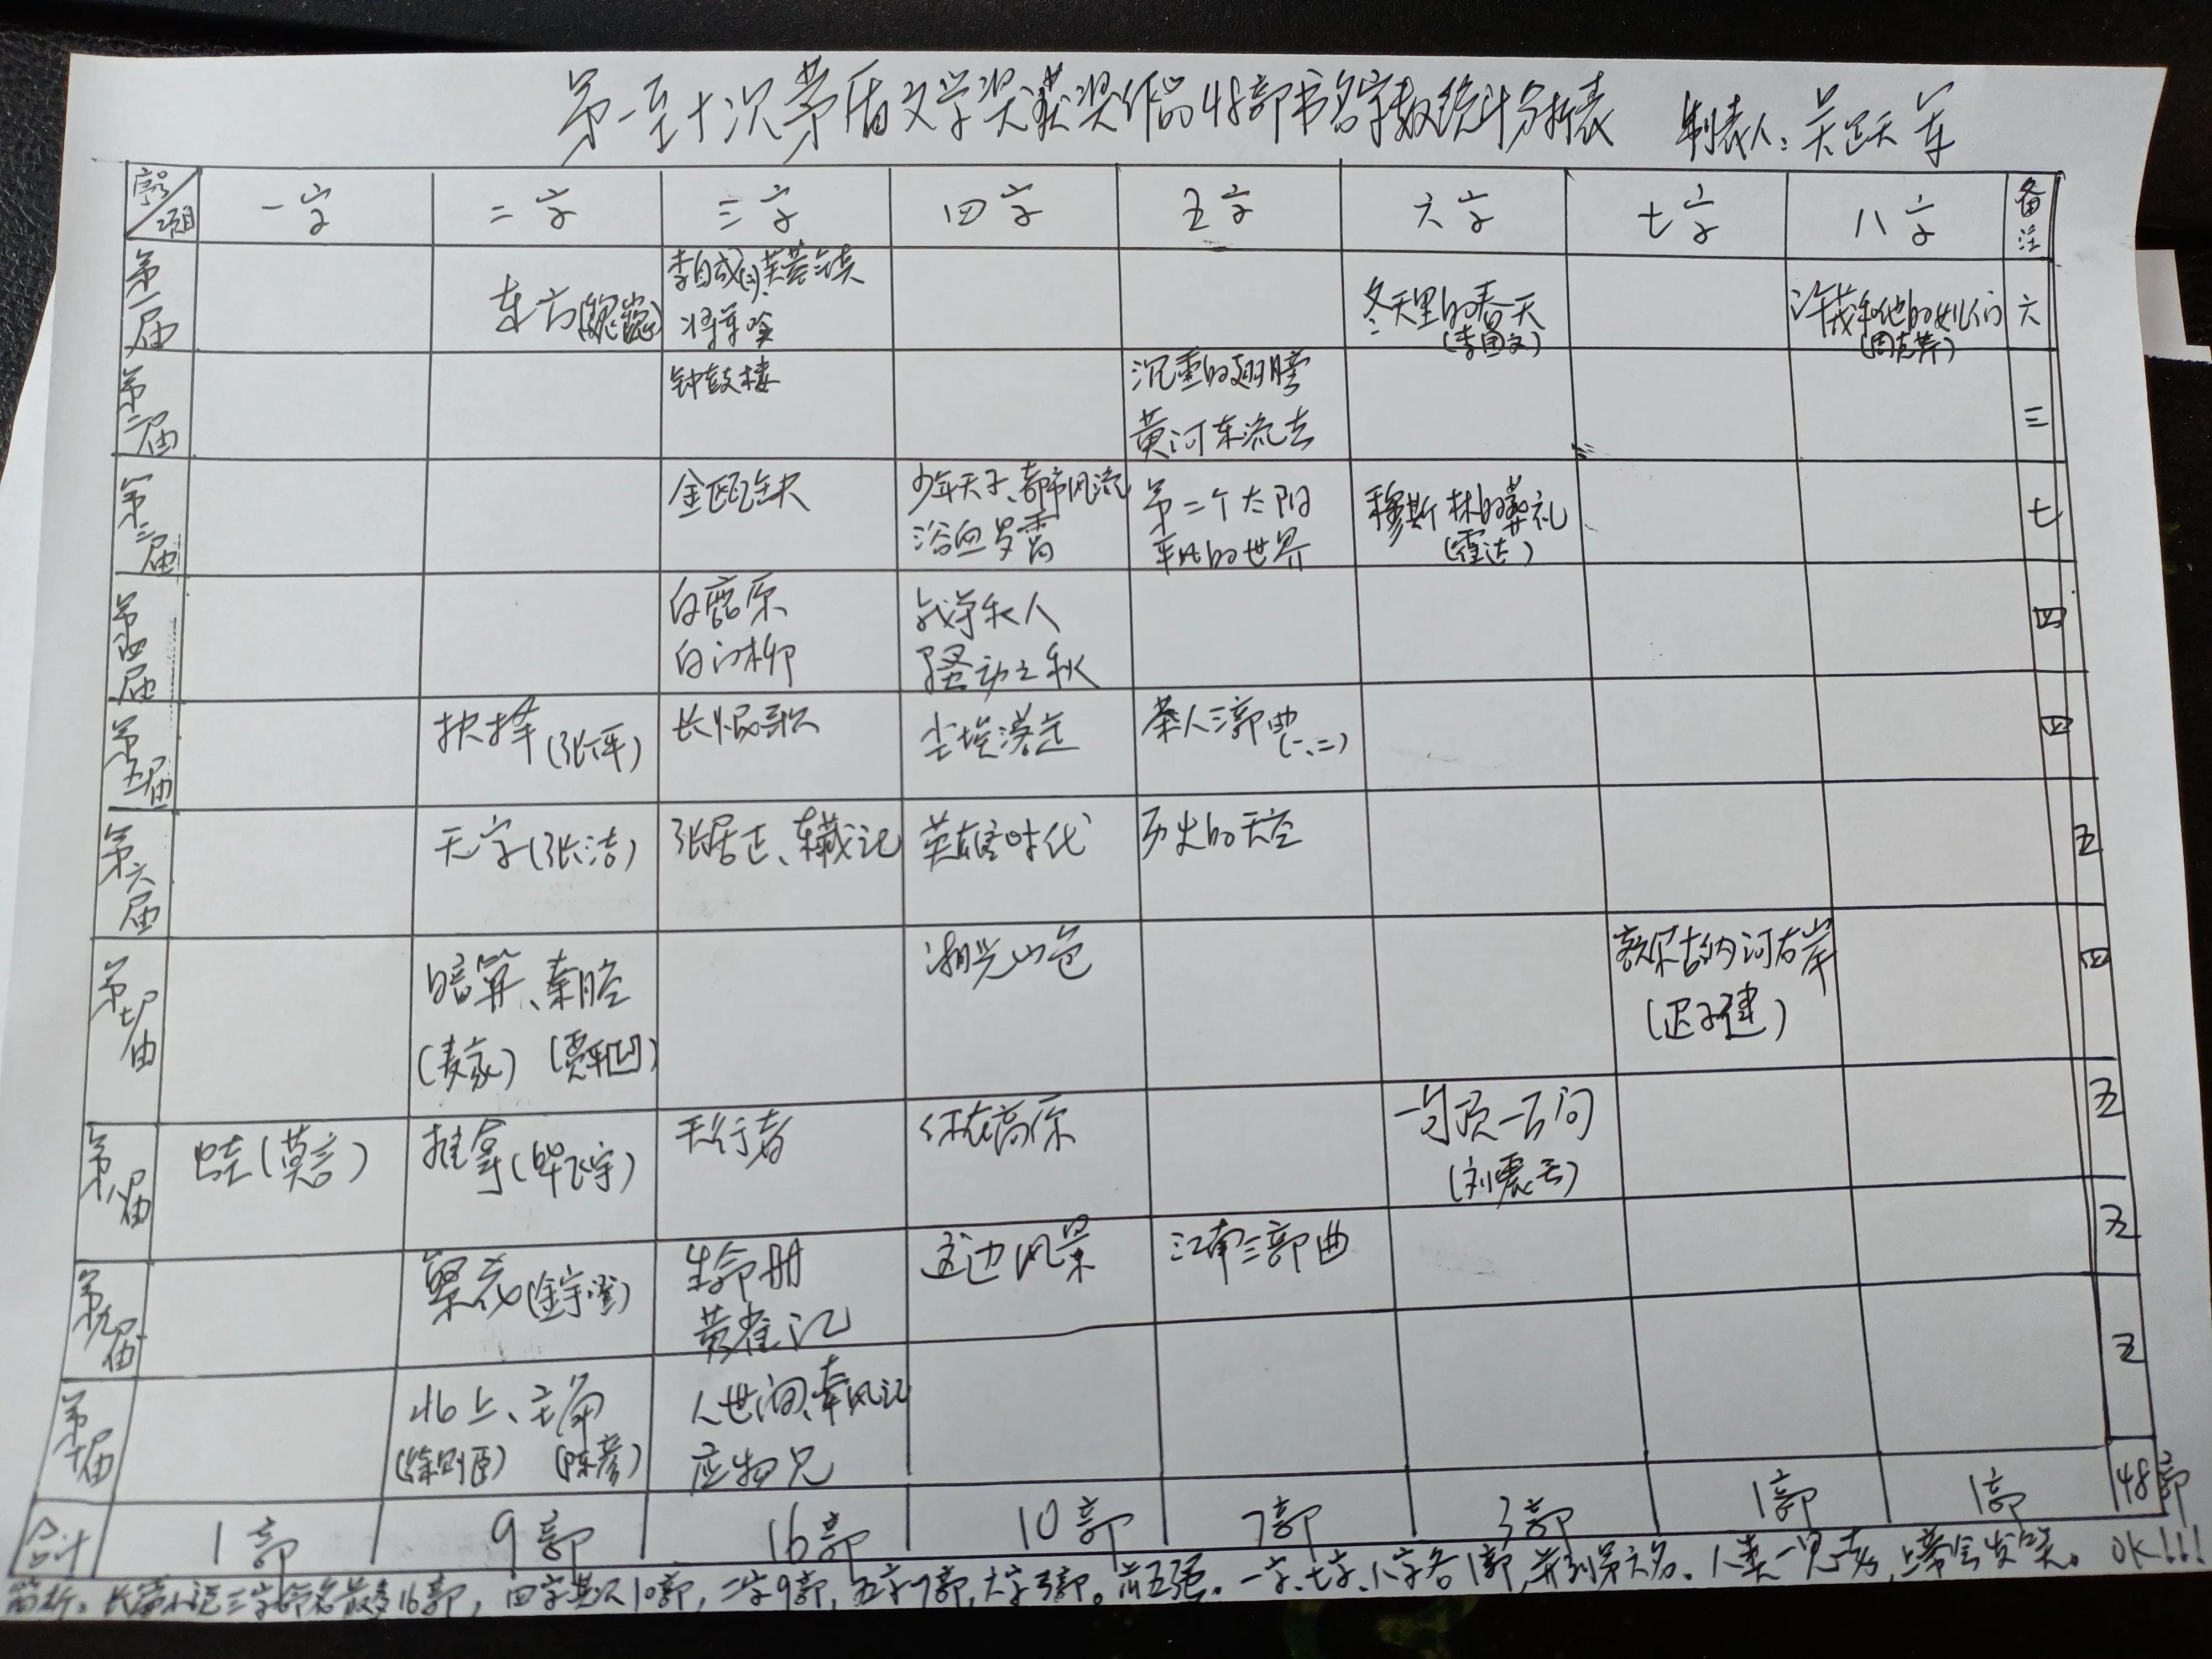 第一至十次茅盾文学奖获奖作品48部书名字数统计分析表 制表人:吴跃军
序号/项目 一字 二字 三字 四字 五字 六字 七字 八字 备注
第一届 东方(魏巍) 李自成(二)、芙蓉镇 冬天里的春天 许茂和他的女儿们 六
将军吟 (李国文) (周克芹)
第二届 钟鼓楼 沉重的翅膀 三
黄河东流去
第三届 金瓯缺 少年天子、都市风流 第二个太阳 穆斯林的葬礼 七
浴血罗霄 平凡的世界 (霍达)
第四届 白鹿原 战争和人 四
白门柳 骚动之秋
第五届 抉择(张平) 长恨歌 尘埃落定 茶人三部曲(一、二) 四
第六届 无字(张洁) 张居正、东藏记 英雄时代 历史的天空 五
第七届 暗算、秦腔 湖光山色 额尔古纳河右岸 四
(麦家) (贾平凹) (迟子建)
第八届 蛙(莫言) 推拿(毕飞宇) 天行者 你在高原 一句顶一万句 五
(刘震云)
第九届 繁花(金宇澄) 生命册 这边风景 江南三部曲 五
黄雀记
第十届 北上、主角 人世间、牵风记 五
(徐则臣) (陈彦) 应物兄
合计 1部 9部 16部 10部 7部 3部 1部 1部 48部
简析。长篇小说三字命名最多16部,四字其次10部,二字9部,五字7部,六字3部。前五强。一字、七字、八字各1部,并列第六名。人类一思考,上帝会发笑。OK!!!